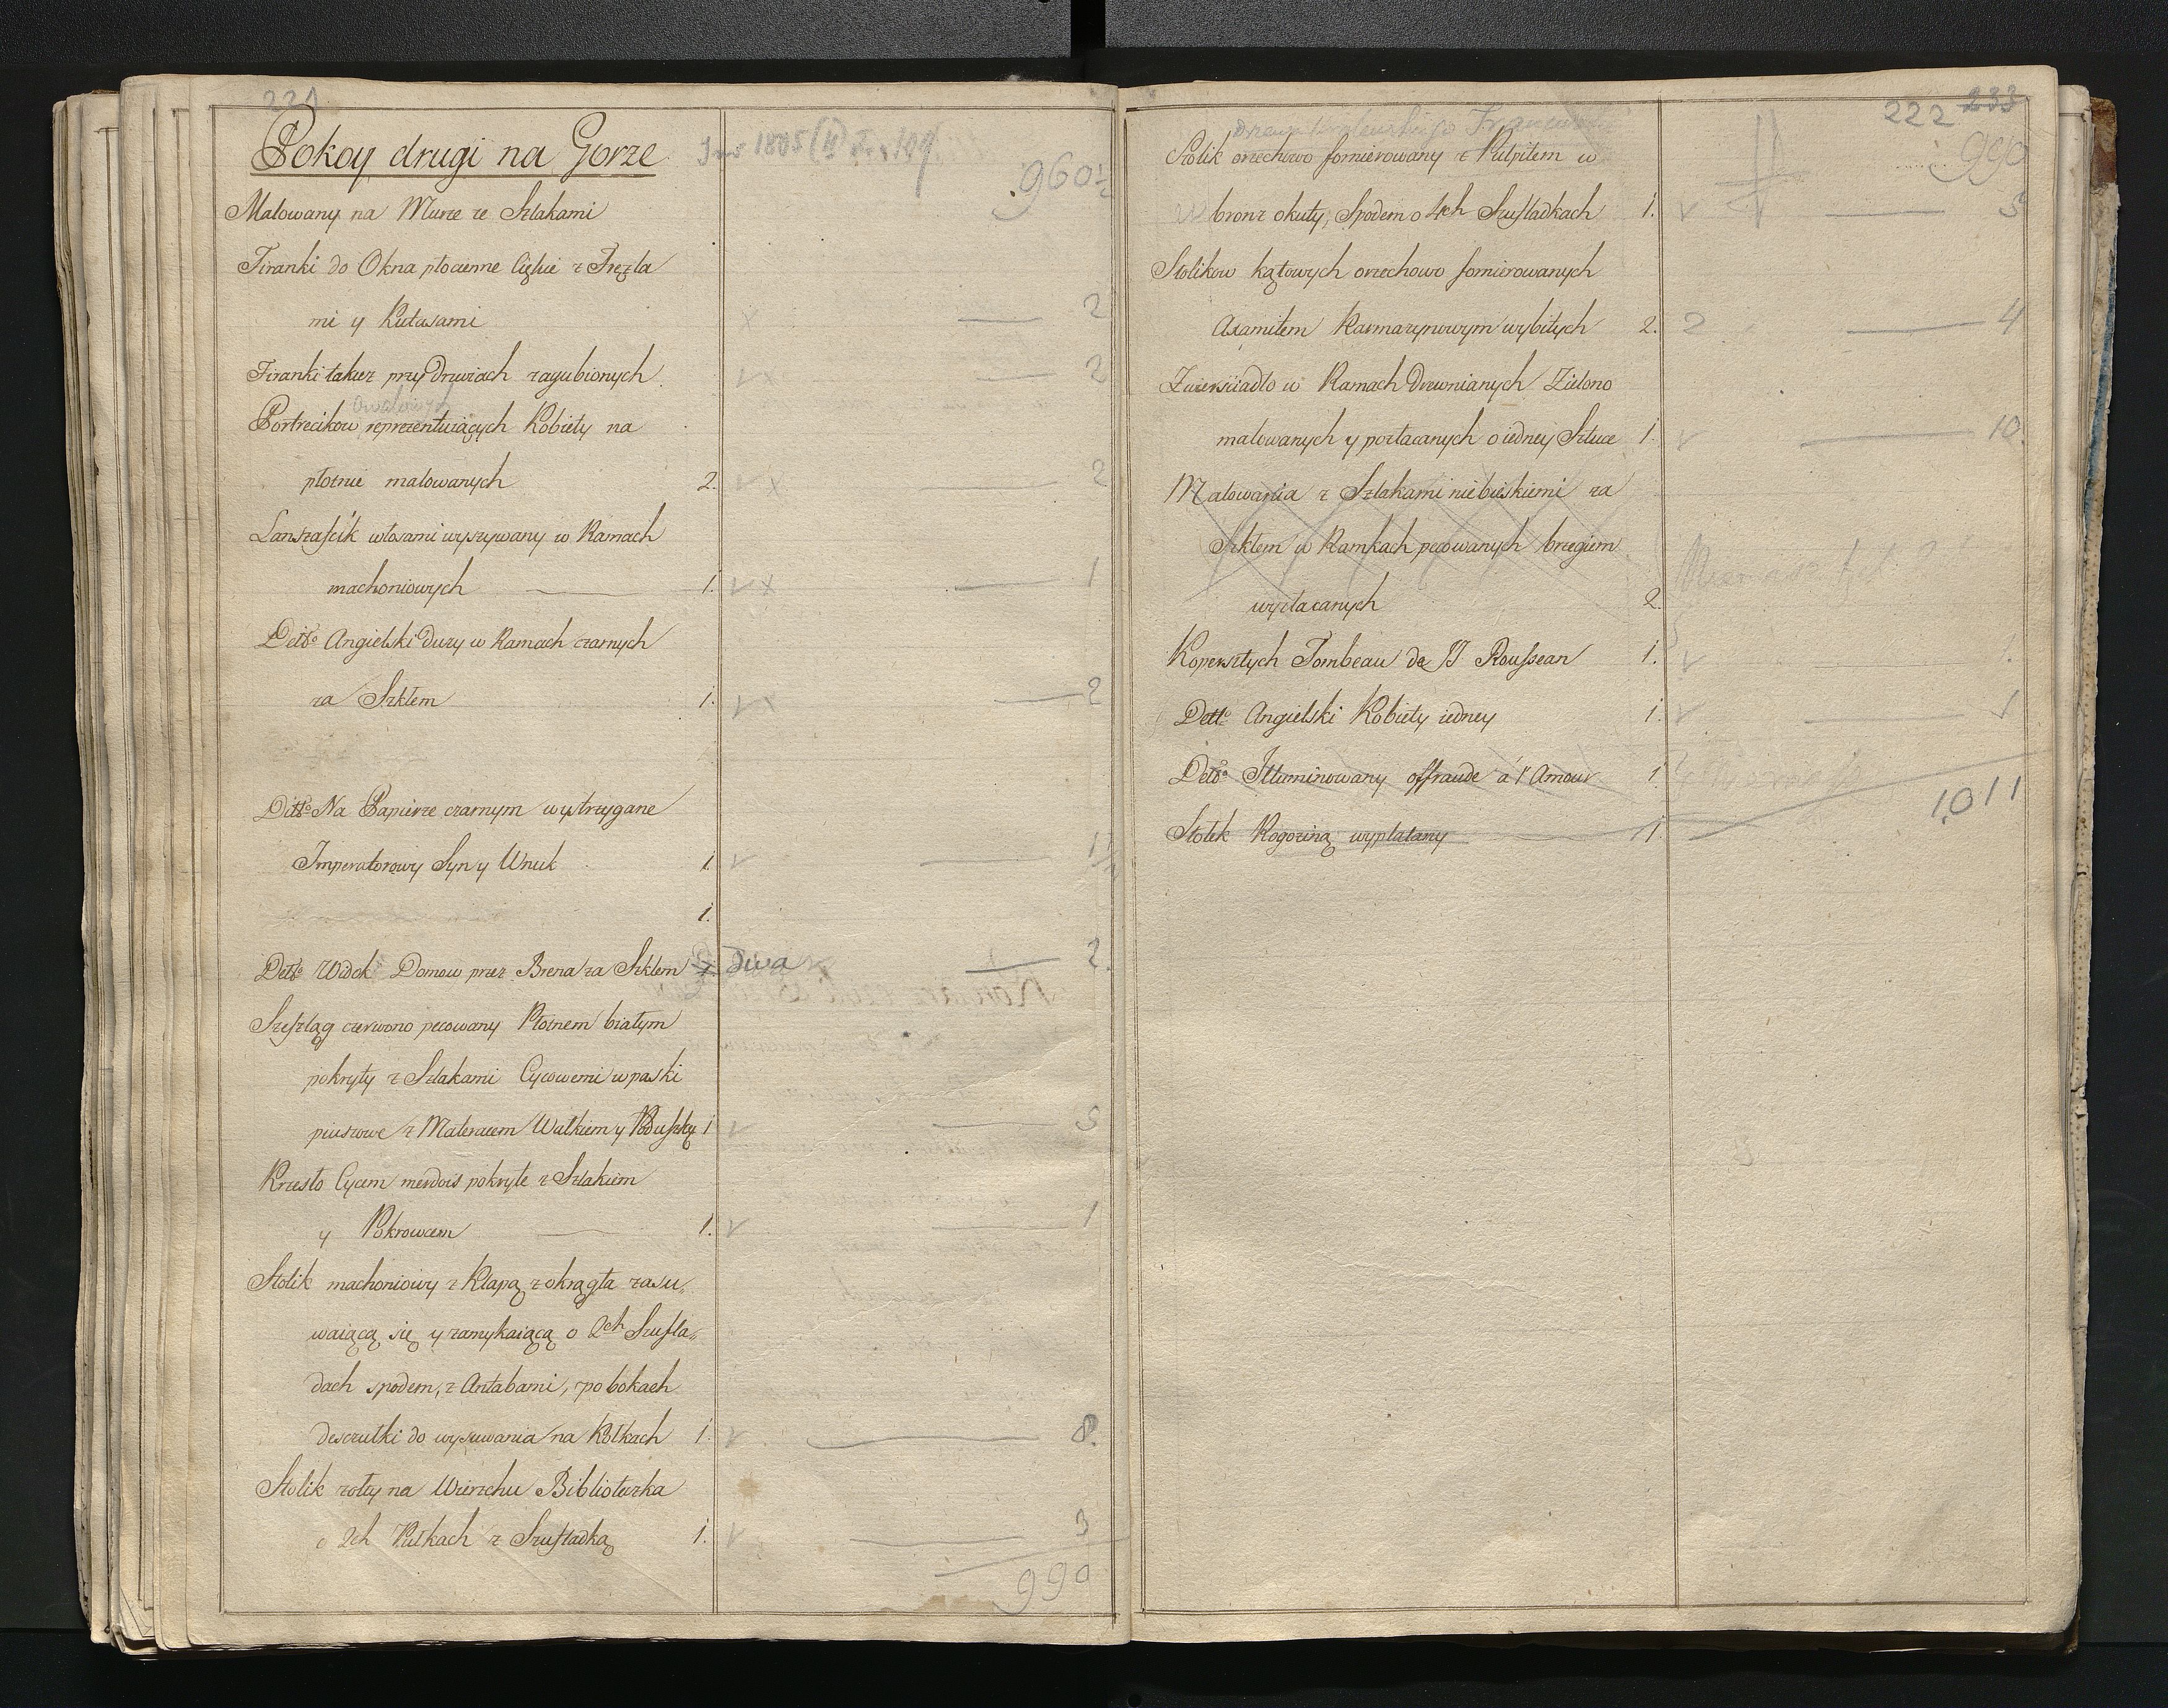 221
Pokoy drugi na Gorze
1805
960½
Malowany na Murze ze Szlakami
Firanki do Okna płocienne lięhie z Fręzla
mi y Kutasami x 2
Firanki takież przy Drzwiach zagubionych v x 2
Owalowych
Portrecikow reprezentuiących Kobiety na
płotnie malowanych 2. v x 2
Lanszafcik włosami wyszywany w Ramach
machoniowych 1. v x 1
Detto Angielski duży w Ramach czarnych
za Szkłem 1. v x 2
Ditto Na Papierze czarnym wystrzygane
Imperatorowy Syn y Wnuk 1. v 1½
1.
Detto Widok Domow przez Brena za Szklem dwa 2.
Szeszląg czerwono pecowany Płotnem białym
pokryty z Szlakami Cycowemi w paski
piusowe z Materacem Wałkiem y Poduszką 1 v 5
Krzesło Cycem merdois pokryte z Szlakiem
y Pokrowcem 1. v 1
Stolik machoniowy z Klapą z okrągła zasu„
waiącą się y zamykaiącą o 2ch Szufla„
dach spodem, z Antabami, po bokach
deszczułki do wysuwania na Kółkach 1. v 8.
Stolik zołty na Wierzchu Biblioteczka
o 2ch Pułkach z Szufladką 1. v 3
990
222 233
990
Stolik orzechowo fornierowany z Pulpitem w
bronz okuty, Spodem o 4ch Szufladkach 1. v 5
Stolikow kątowych orzechowo fornierowanych
Axamitem Karmazynowym wybitych 2. 2 4
Zwierściadło w Ramach drewnianych Zielono
malowanych y pozłacanych o iedney Sztuce 1. v 10.
Malowania z Szlakami niebieskiemi za
Szkłem w Ramkach pecowanych brzegiem
wyzłacanych 2.
Kopersztych Tombeau de JJ Rousseau 1. v 1.
Detto Angielski Kobiety iedney 1. v 1
Detto Illuminowany offrande á l'Amour 1.
1,011
Stołek Rogoziną wyplatany 1.